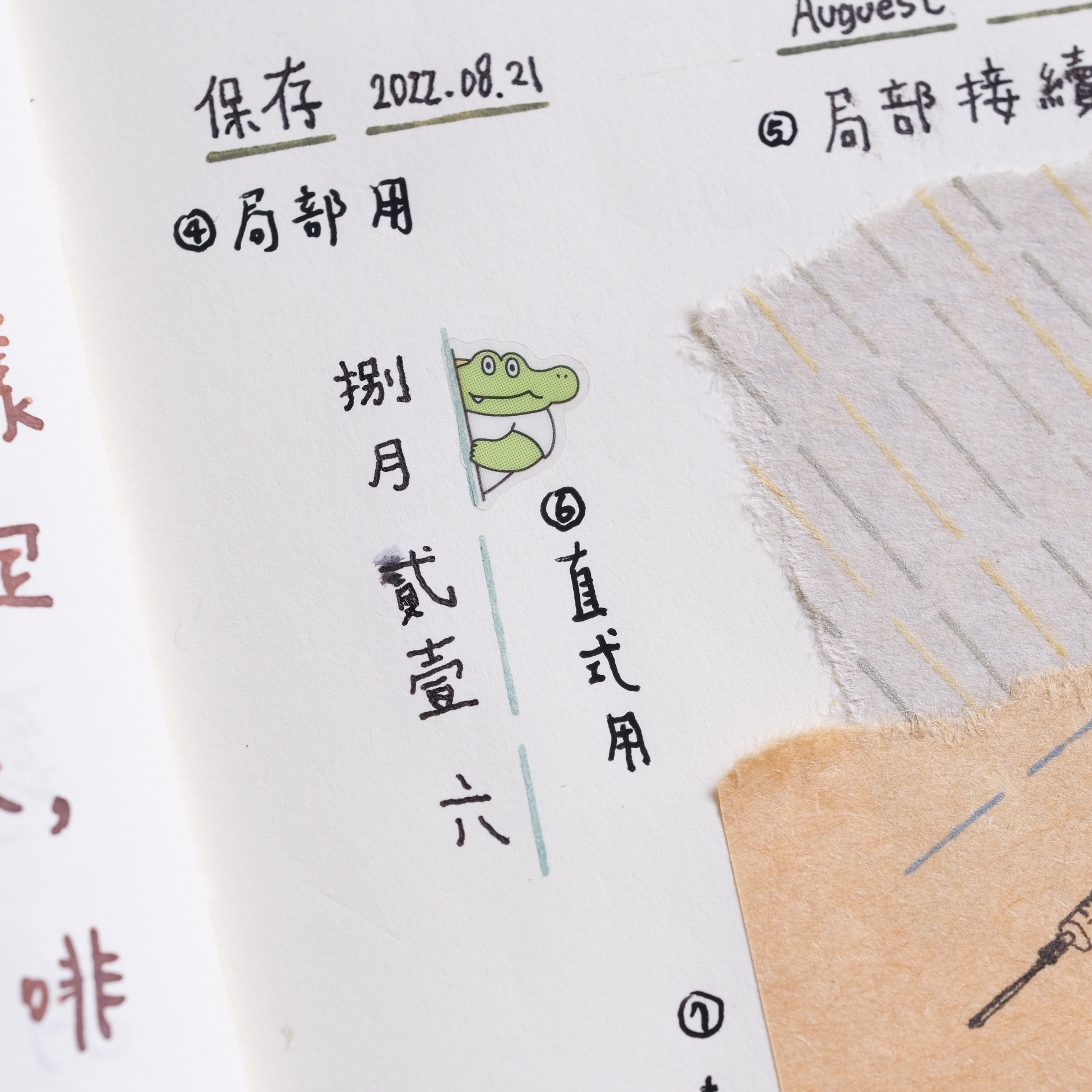 保存 2022.08.21
④局部用
Auguest
⑤局部接續
捌月貳壹六
⑥直式用
⑦
啡